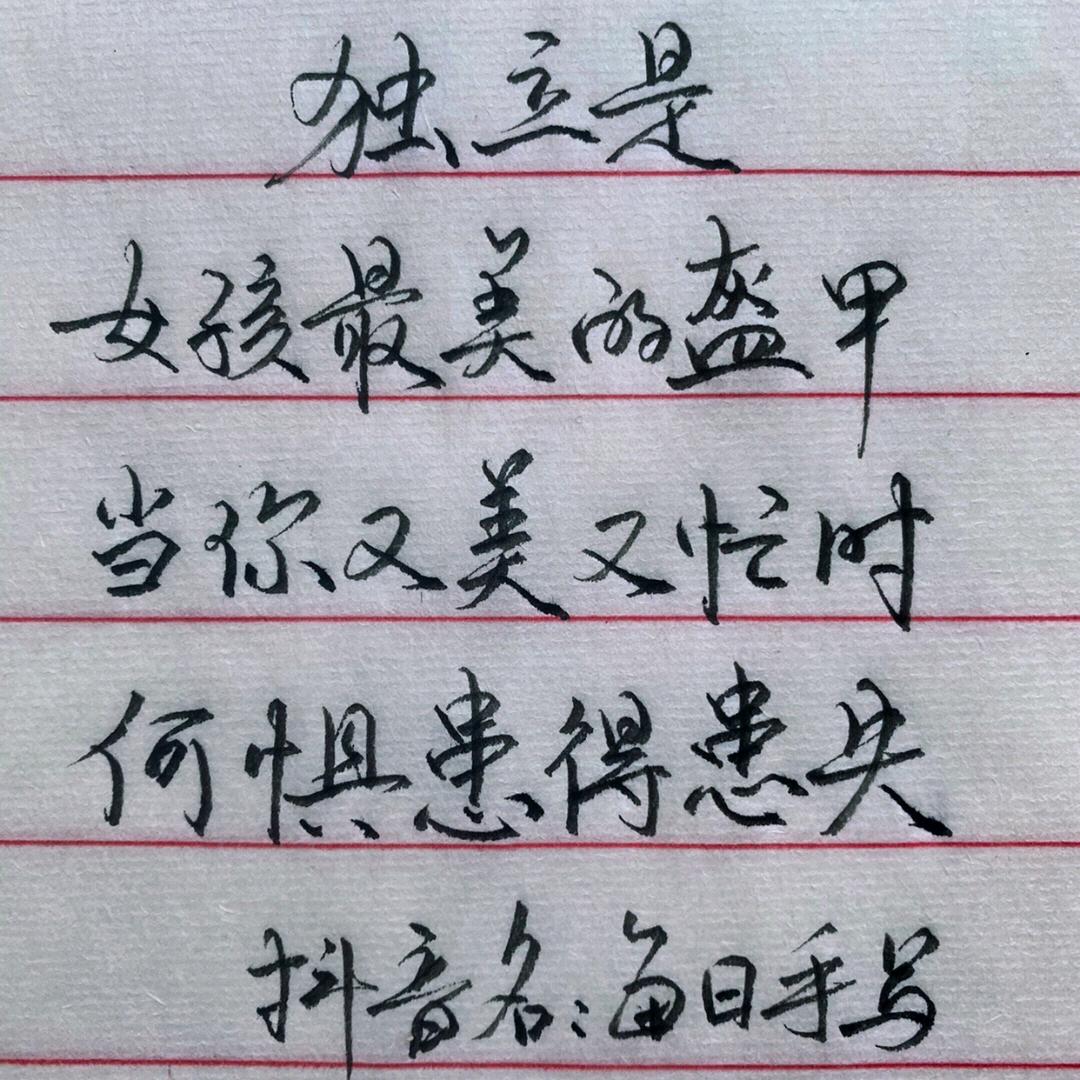 独立是
女孩最美的盔甲
当你又美又忙时
何惧患得患失
抖音名:每日手写